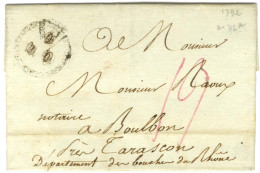 1792
A Monsieur
Monsieur Raoux
notaire
a Boulbon
19
près Tarascon
Département des bouches du Rhône